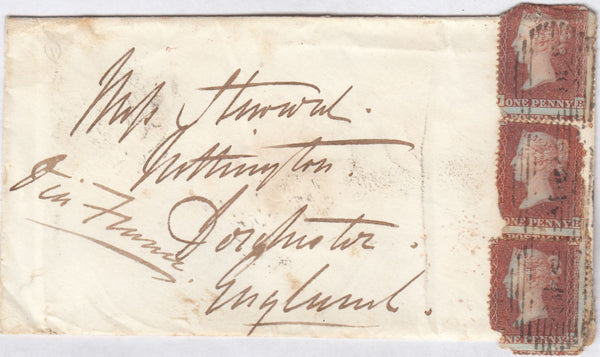 Miss Steward.
Nottington.
Dorchester.
England.
Via France.
ONE PENNY
POSTAGE
ONE PENNY
POSTAGE
ONE PENNY